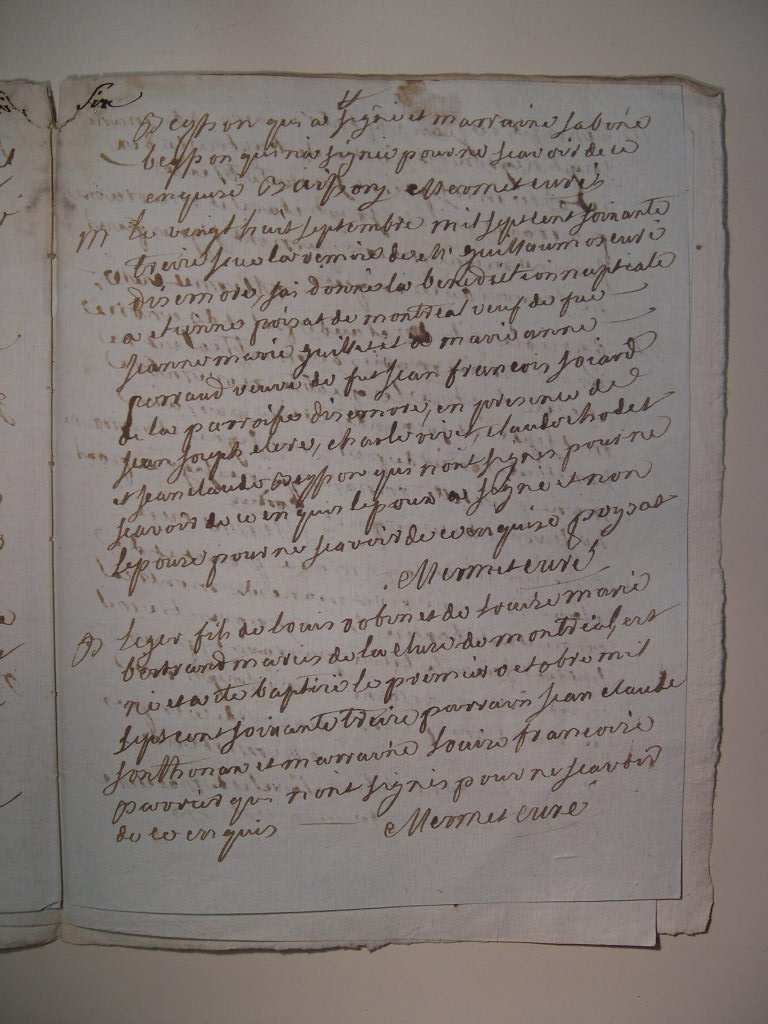 Six
Beysson qui a signé et marraine sabine
beysson qui na signée pour ne scavoir de ce
enquise Baisson Mermet curé
m le vingt huit septembre mil sept cent soixante
treize sous la remise de Mr guillaumos curé
disernore, jai donnés la benediction nuptiale
a etienne poisat de montreal veuf de fue
jeanne marie guillet et a marie anne
perraud veuve de fut jean francois joiard
de la parroisse disernore, en presence de
jean joseph clere, charle vivet, claude chodet
et jean claude Beysson qui nont signés pour ne
scavoir de ce enquis lepoux a signé et non
lepouse pour ne scavoir de ce enquise poysat
Mermet curé
B leger fils de louis robin et de louise marie
bertrand mariés de la cluse de montreal, est
né et a ete baptisé le premier octobre mil
sept cent soixante treize parrain jean claude
sonthonax et marraine louise francoise
qui nont signés pour ne scavoir
de ce enquis Mermet curé